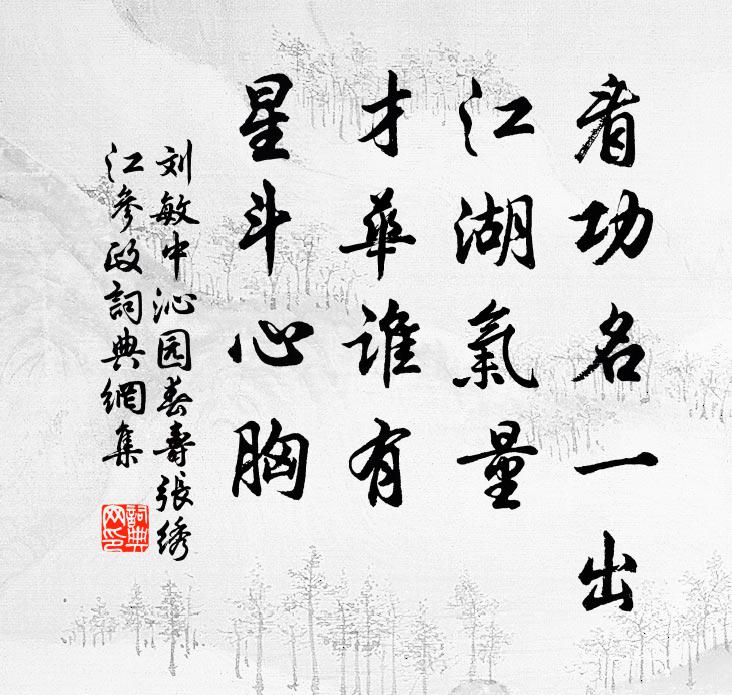 看功名一出
江湖氣量
才華誰有
星斗心胸
刘敏中沁园春壽張绣
江參政詞典網集
詞典网印